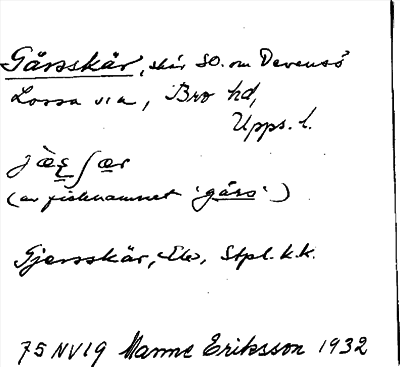 Gårsskär, skär SO. om Devensö
Lossa sn, Bro hd,
Upps. l.
(av fisknamnet 'gårs')
Gjersskär, Ek, Stpl. k.k.
75 NV 19 Manne Eriksson 1932